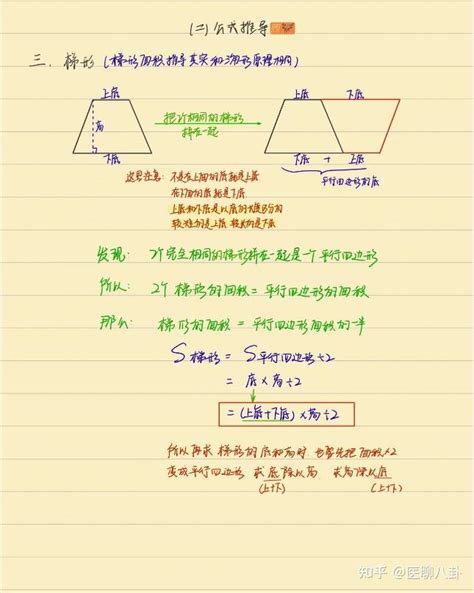 (二)公式推导
三、梯形(梯形面积推导其实和三角形原理相同)
上底 上底 下底
高 把2个相同的梯形
拼在一起
下底 下底 + 上底
平行四边形的底
这里注意: 不是在上面的底就是上底
在下面的底就是下底
上底和下底是以底的长度区分的
较短的是上底 较长的是下底
发现: 2个完全相同的梯形拼在一起是一个平行四边形
所以: 2个梯形的面积=平行四边形的面积
那么: 梯形的面积=平行四边形面积的一半
S梯形=S平行四边形÷2
=底×高÷2
=(上底+下底)×高÷2
所以再求梯形的底和高时 也要先把面积×2
变成平行四边形 求底除以高 求高除以底
(上+下) (上+下)
知乎 @医聊八卦